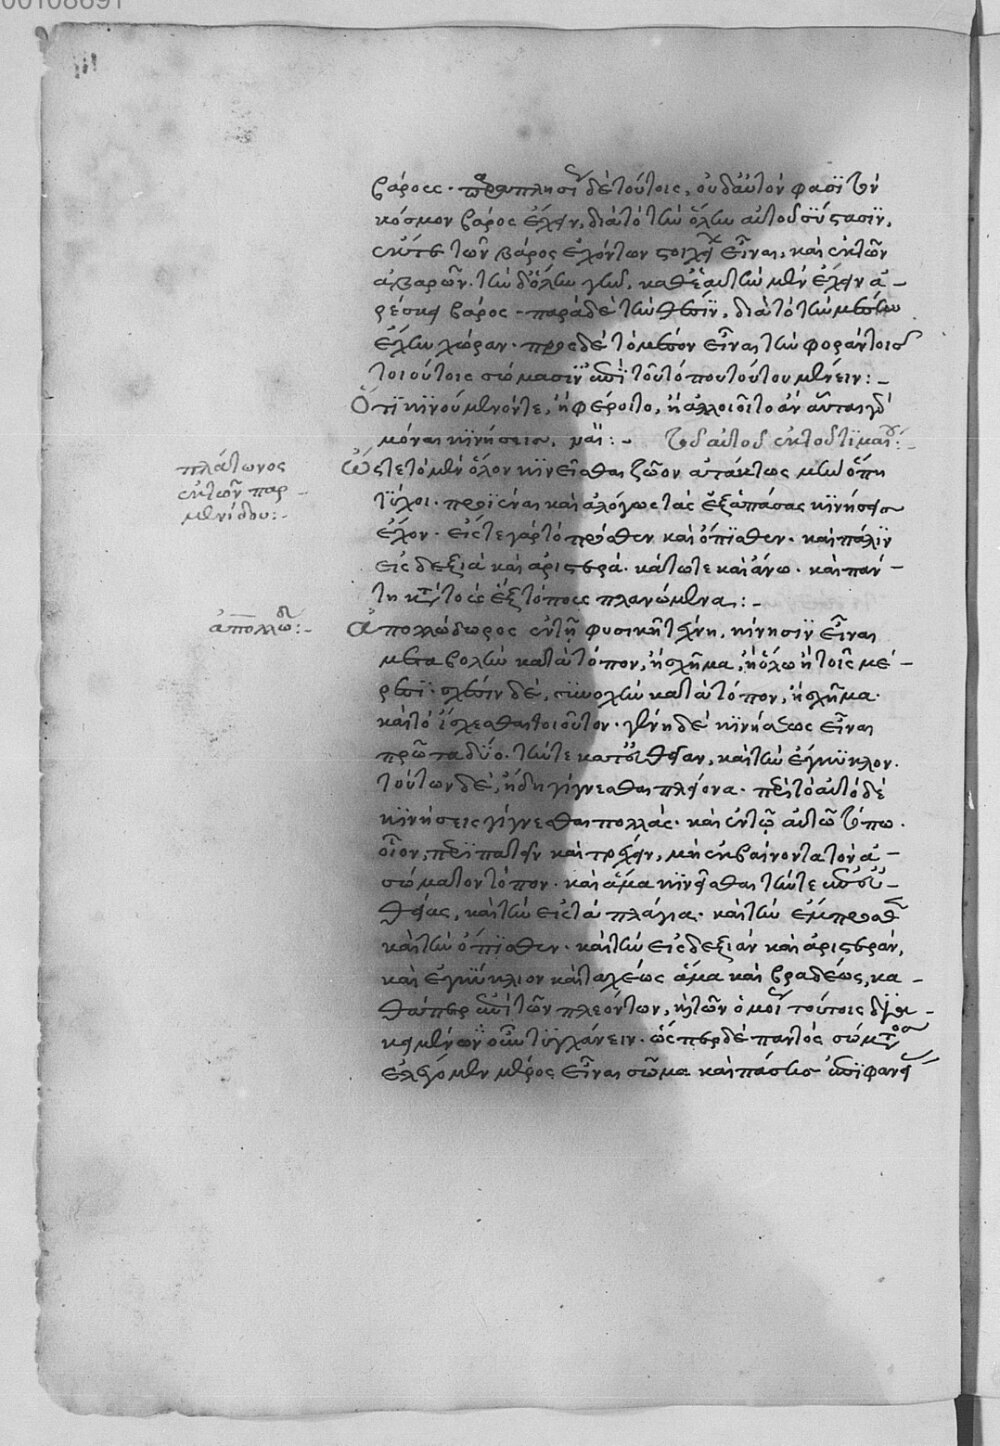 00108691
βάρους· παραπλησί δὲ τούτοις, οὐδ' αὐτόν φασϊ τὸν
κόσμον βάρος ἔχειν, διὰ τὸ τὴν ὅλην αὐτοῦ σύστασϊν,
ἐκ τε τῶν βάρος ἐχόντων στοιχεί εἶναι, καὶ ἐκ τῶν
ἀβαρῶν. τὴν δ' ὅλην γῆν, καθ' ἑαυτὴν μὲν ἔχειν ἀ-
ρέσκει βάρος· παρὰ δὲ τὴν θέσϊν, διὰ τὸ τὴν μέσην
ἔχειν χώραν· πρὸς δὲ τὸ μέσον εἶναι τὴν φορὰν τοῖς
τοιούτοις σώμασϊν ἐπὶ τοῦ τόπου τούτου μένειν:-
Ὅτϊ κϊνούμενόν τε, ἢ φέροιτο, ἢ ἀλλοιοῖτο ἂν αὗται γὰρ
μόναι κϊνήσεις, ναί:- τοῦ αὐτοῦ ἐκ τοῦ τϊμαί:-
πλάτωνος
ἐκ τῶν παρ-
μενίδου:-
Ὥστε τὸ μὲν ὅλον κϊνεῖσθαι ζῶον ἀτάκτως μὴν ὅπη
τύχοι· προϊέναι καὶ ἀλόγως τὰς ἓξ ἁπάσας κϊνήσεις
ἔχον· εἴς τε γὰρ τὸ πρόσθεν καὶ ὄπϊσθεν· καὶ πάλϊν
εἰς δεξιὰ καὶ ἀριστερά· κάτω τε καὶ ἄνω· καὶ παν-
τη κατὰ τοὺς ἓξ τόπους πλανώμενα:-
ἀπολλοδ:-
Ἀπολλόδωρος ἐν τῇ φυσικῇ τέχνη, κίνησϊν εἶναι
μεταβολὴν κατὰ τόπον, ἢ σχῆμα, ἢ ὅλω ἢ τοῖς μέ-
ρεσϊ· σχέσϊν δὲ, συνοχὴν κατὰ τόπον, ἢ σχῆμα·
καὶ τὸ ἴσχεσθαι τοιοῦτον· γένη δὲ κϊνήσεως εἶναι
πρῶτα δύο· τήν τε κατ' εὐθεῖαν, καὶ τὴν ἐγκύκλον·
τούτων δὲ, ἤδη γίγνεσθαι πλείονα· περὶ τὸ αὐτὸ δὲ
κϊνήσεις γίγνεσθαι πολλάς· καὶ ἐν τῷ αὐτῷ τόπω.
οἷον, περϊπατεῖν καὶ τρέχειν, μὴ ἐκβαίνοντα τὸν ἀ-
σώματον τόπον· καὶ ἅμα κϊνεῖσθαι τήν τε ἐπ' εὐ-
θείας, καὶ τὴν εἰς τὰ πλάγια· καὶ τὴν ἔμπροσθ
καὶ τὴν ὄπϊσθεν· καὶ τὴν εἰς δεξιὰν καὶ ἀριστερὰν,
καὶ ἐγκύκλιον καὶ ταχέως ἅμα καὶ βραδέως, κα-
θάπερ ἐπὶ τῶν πλεόντων, ἢ τῶν ὁμοί τούτοις
οὖν τυγχάνειν· ὥσπερ δὲ παντὸς σώματος
ἐλέγομεν μέρος εἶναι σῶμα καὶ πάσης ἐπϊφανεί